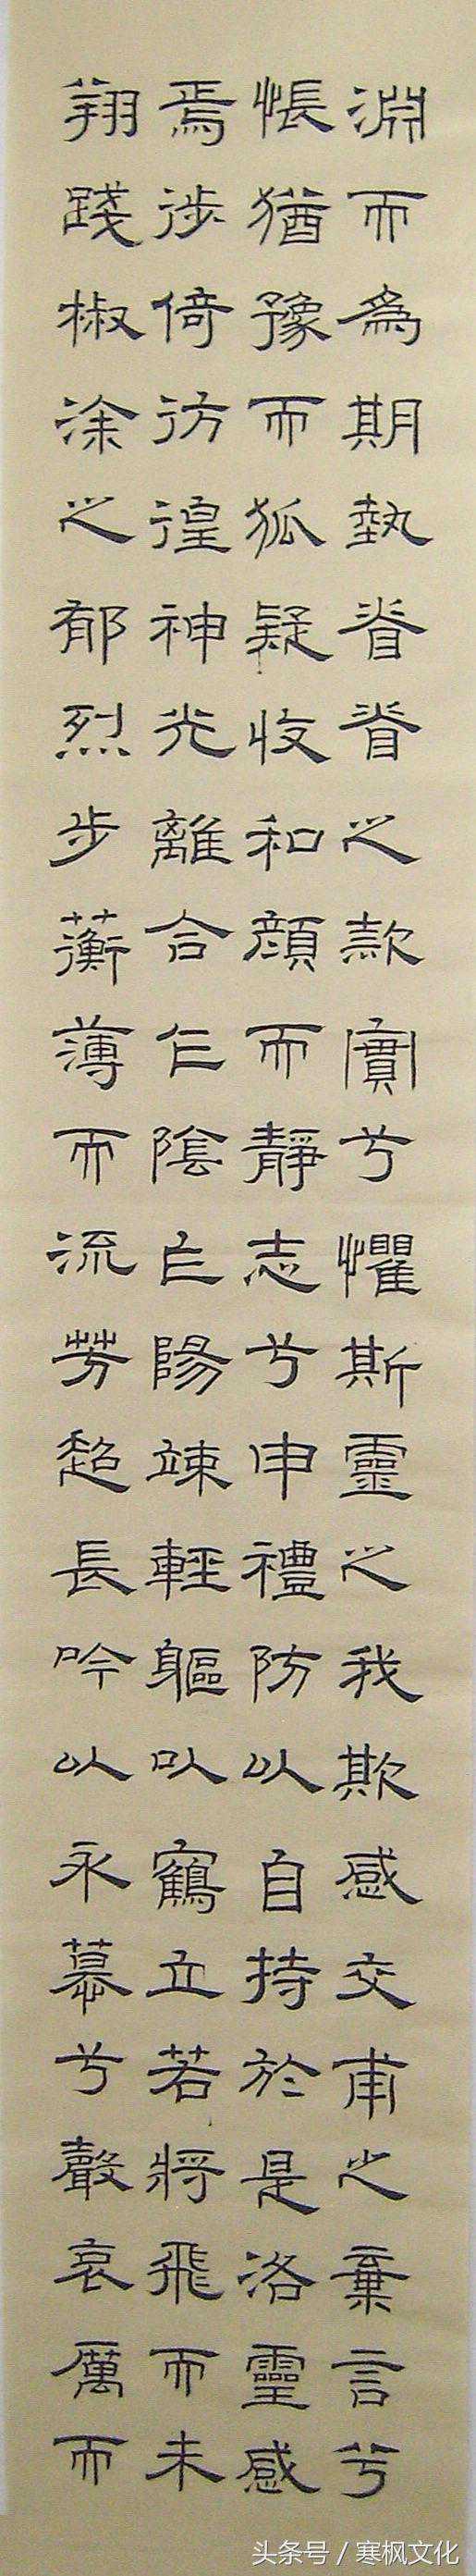 淵而為期執眷眷之款實兮懼斯靈之我欺感交甫之棄言兮
悵猶豫而狐疑收和顏而靜志兮申禮防以自持於是洛靈感
焉徙倚彷徨神光離合乍陰乍陽竦輕軀以鶴立若將飛而未
翔踐椒涂之郁烈步蘅薄而流芳超長吟以永慕兮聲哀厲而
头条号 / 寒枫文化